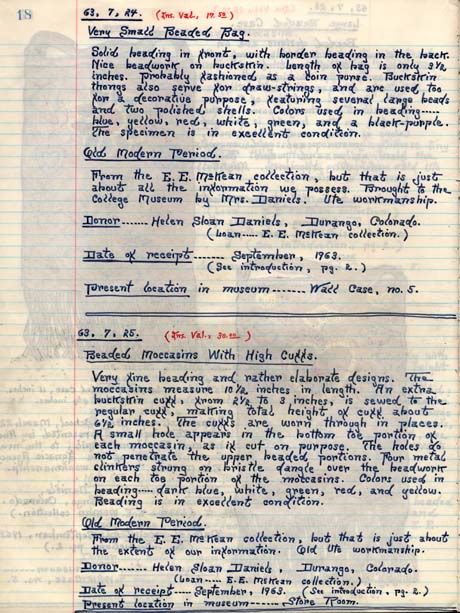 18
63. 7. 24. (Ins. Val., 17.50)
Very Small Beaded Bag.
Solid beading in front, with border beading in the back.
Nice beadwork on buckskin. Length of bag is only 3½
inches. Probably fashioned as a coin purse. Buckskin
thongs also serve for draw-strings, and are used too
for a decorative purpose, featuring several large beads
and two polished shells. Colors used in beading----
blue, yellow, red, white, green, and a black-purple.
The specimen is in excellent condition.
Old Modern Period.
From the E.E. McKean collection, but that is just
about all the information we possess. Brought to the
College Museum by Mrs. Daniels. Ute workmanship.
Donor----- Helen Sloan Daniels, Durango, Colorado.
(Loan---- E.E. McKean collection.)
Date of receipt------ September, 1963.
(See introduction, pg. 2.)
Present location in museum------- Wall Case, no. 5.
63. 7. 25. (Ins. Val., 30.00)
Beaded Moccasins With High Cuffs.
Very fine beading and rather elaborate designs. The
moccasins measure 10½ inches in length. An extra
buckskin cuff, from 2½ to 3 inches, is sewed to the
regular cuff, making total height of cuff about
6½ inches. The cuffs are worn through in places.
A small hole appears in the bottom toe portion of
each moccasin, as if cut on purpose. The holes do
not penetrate the upper beaded portions. Four metal
clinkers strung on bristle dangle over the beadwork
on each toe portion of the moccasins. Colors used in
beading---- dark blue, white, green, red, and yellow.
Beading is in excellent condition.
Old Modern Period.
From the E.E. McKean collection, but that is just about
the extent of our information. Old Ute workmanship.
Donor------ Helen Sloan Daniels, Durango, Colorado.
(Loan---- E.E. McKean collection.)
Date of receipt---- September, 1963. (See introduction, pg. 2.)
Present location in museum------ Store Room.